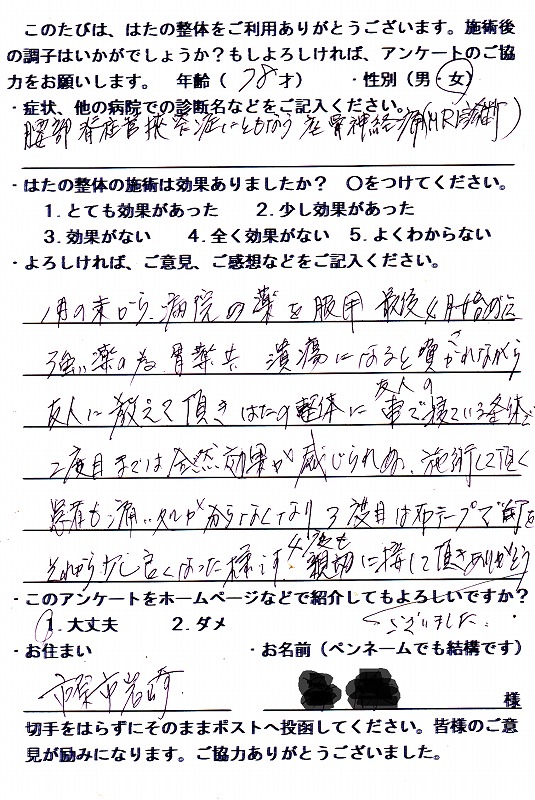 このたびは、はたの整体をご利用ありがとうございます。施術後
の調子はいかがでしょうか？もしよろしければ、アンケートのご協
力をお願いします。 年齢（ 78 才） ・性別（男・女）
・症状、他の病院での診断名などをご記入ください。
腰部脊柱管狭窄症にともなう座骨神経痛(MRI診断)
・はたの整体の施術は効果ありましたか？ 〇をつけてください。
1．とても効果があった 2．少し効果があった
3．効果がない 4．全く効果がない 5．よくわからない
・よろしければ、ご意見、ご感想などをご記入ください。
1月の末から、病院の薬を服用 最後4月始めに
強い薬の為胃薬共 潰瘍になると驚かれながら
友人に教えて頂きはたの整体に友人の車で寝ている
2度目までは全然効果が感じられぬ、施術して頂く
患者も痛い 分からなくなり3度目は布テープで
それから少し良くなった様です 親切に接して頂きありがとう
ございました.
・このアンケートをホームページなどで紹介してもよろしいですか？
1．大丈夫 2．ダメ
・お住まい ・お名前（ペンネームでも結構です）
市原市岩崎 様
切手をはらずにそのままポストへ投函してください。皆様のご意
見が励みになります。ご協力ありがとうございました。